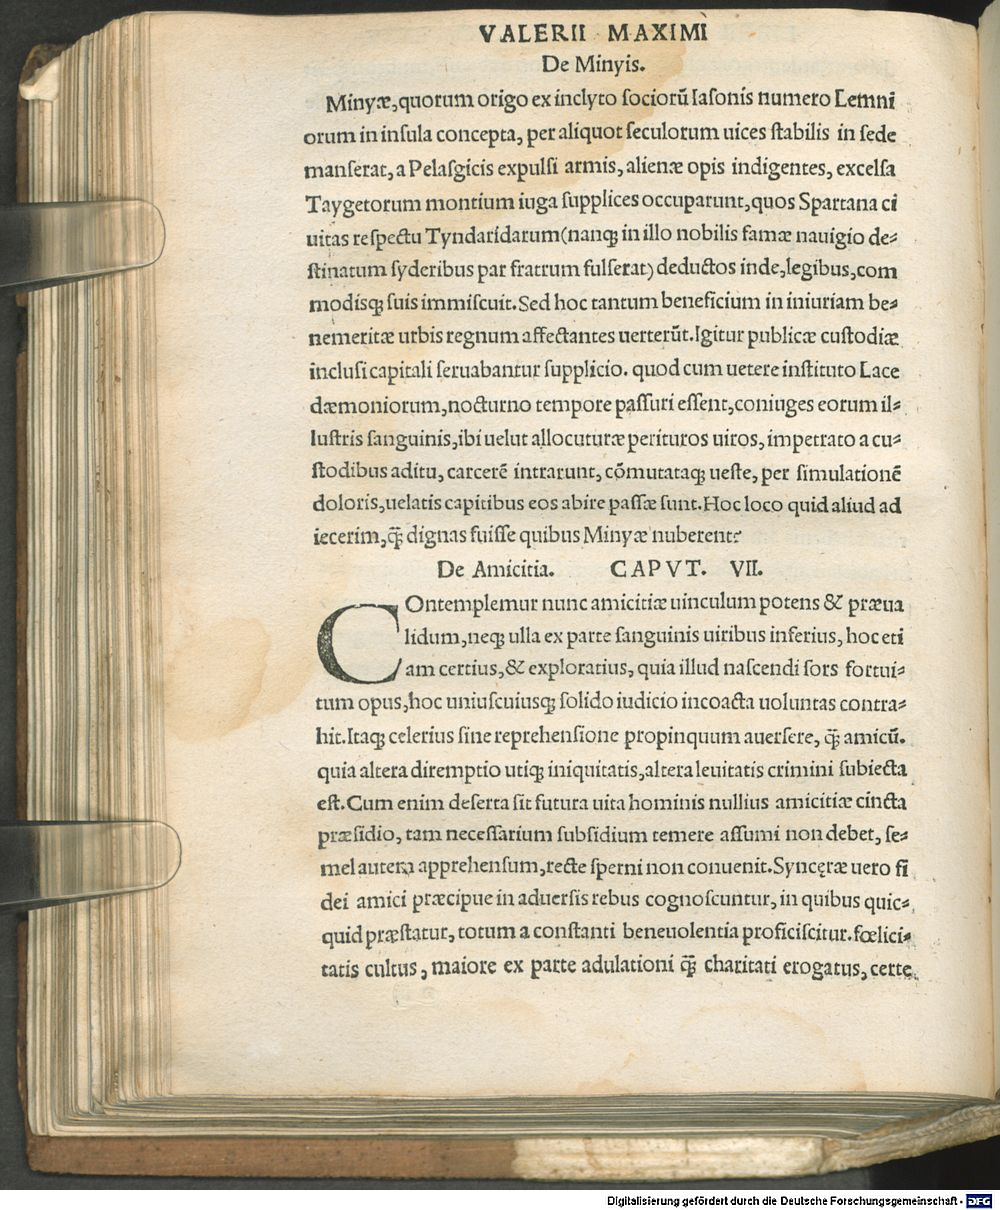 VALERII MAXIMI
De Minyis.
Minyæ,quorum origo ex inclyto ſociorū Iaſonis numero Lemni
orum in inſula concepta, per aliquot ſeculorum uices ſtabilis in ſede
manſerat, a Pelaſgicis expulſi armis, alienæ opis indigentes, excelſa
Taygetorum montium iuga ſupplices occuparunt,quos Spartana ci
uitas reſpectu Tyndaridarum(nanq; in illo nobilis famæ nauigio de⸗
ſtinatum ſyderibus par fratrum fulſerat) deductos inde,legibus,com
modisq; ſuis immiſcuit.Sed hoc tantum beneficium in iniuriam be⸗
nemeritæ urbis regnum affectantes uerterūt.Igitur publicæ cuſtodiæ
incluſi capitali ſeruabantur ſupplicio. quod cum uetere inſtituto Lace
dæmoniorum,nocturno tempore paſſuri eſſent,coniuges eorum il⸗
luſtris ſanguinis,ibi uelut allocuturæ perituros uiros, impetrato a cu⸗
ſtodibus aditu, carcerē intrarunt, cōmutataq; ueſte, per ſimulationē
doloris,uelatis capitibus eos abire paſſæ ſunt.Hoc loco quid aliud ad
iecerim,q̄ dignas fuiſſe quibus Minyæ nuberent?
De Amicitia. CAPVT. VII.
COntemplemur nunc amicitiæ uinculum potens & præua
lidum,neq; ulla ex parte ſanguinis uiribus inferius, hoc eti
am certius,& exploratius, quia illud naſcendi ſors fortui⸗
tum opus,hoc uniuſcuiusq; ſolido iudicio incoacta uoluntas contra⸗
hit.Itaq; celerius ſine reprehenſione propinquum auerſere, q̄ amicū.
quia altera diremptio utiq; iniquitatis,altera leuitatis crimini ſubiecta
eſt.Cum enim deſerta ſit futura uita hominis nullius amicitiæ cincta
præſidio, tam neceſſarium ſubſidium temere aſſumi non debet, ſe⸗
mel autem apprehenſum,recte ſperni non conuenit.Syncęræ uero fi
dei amici præcipue in aduerſis rebus cognoſcuntur, in quibus quic⸗
quid præſtatur, totum a conſtanti beneuolentia proficiſcitur.fœlici⸗
tatis cultus, maiore ex parte adulationi q̄ charitati erogatus, certe
Digitalisierung gefördert durch die Deutsche Forschungsgemeinschaft - DFG